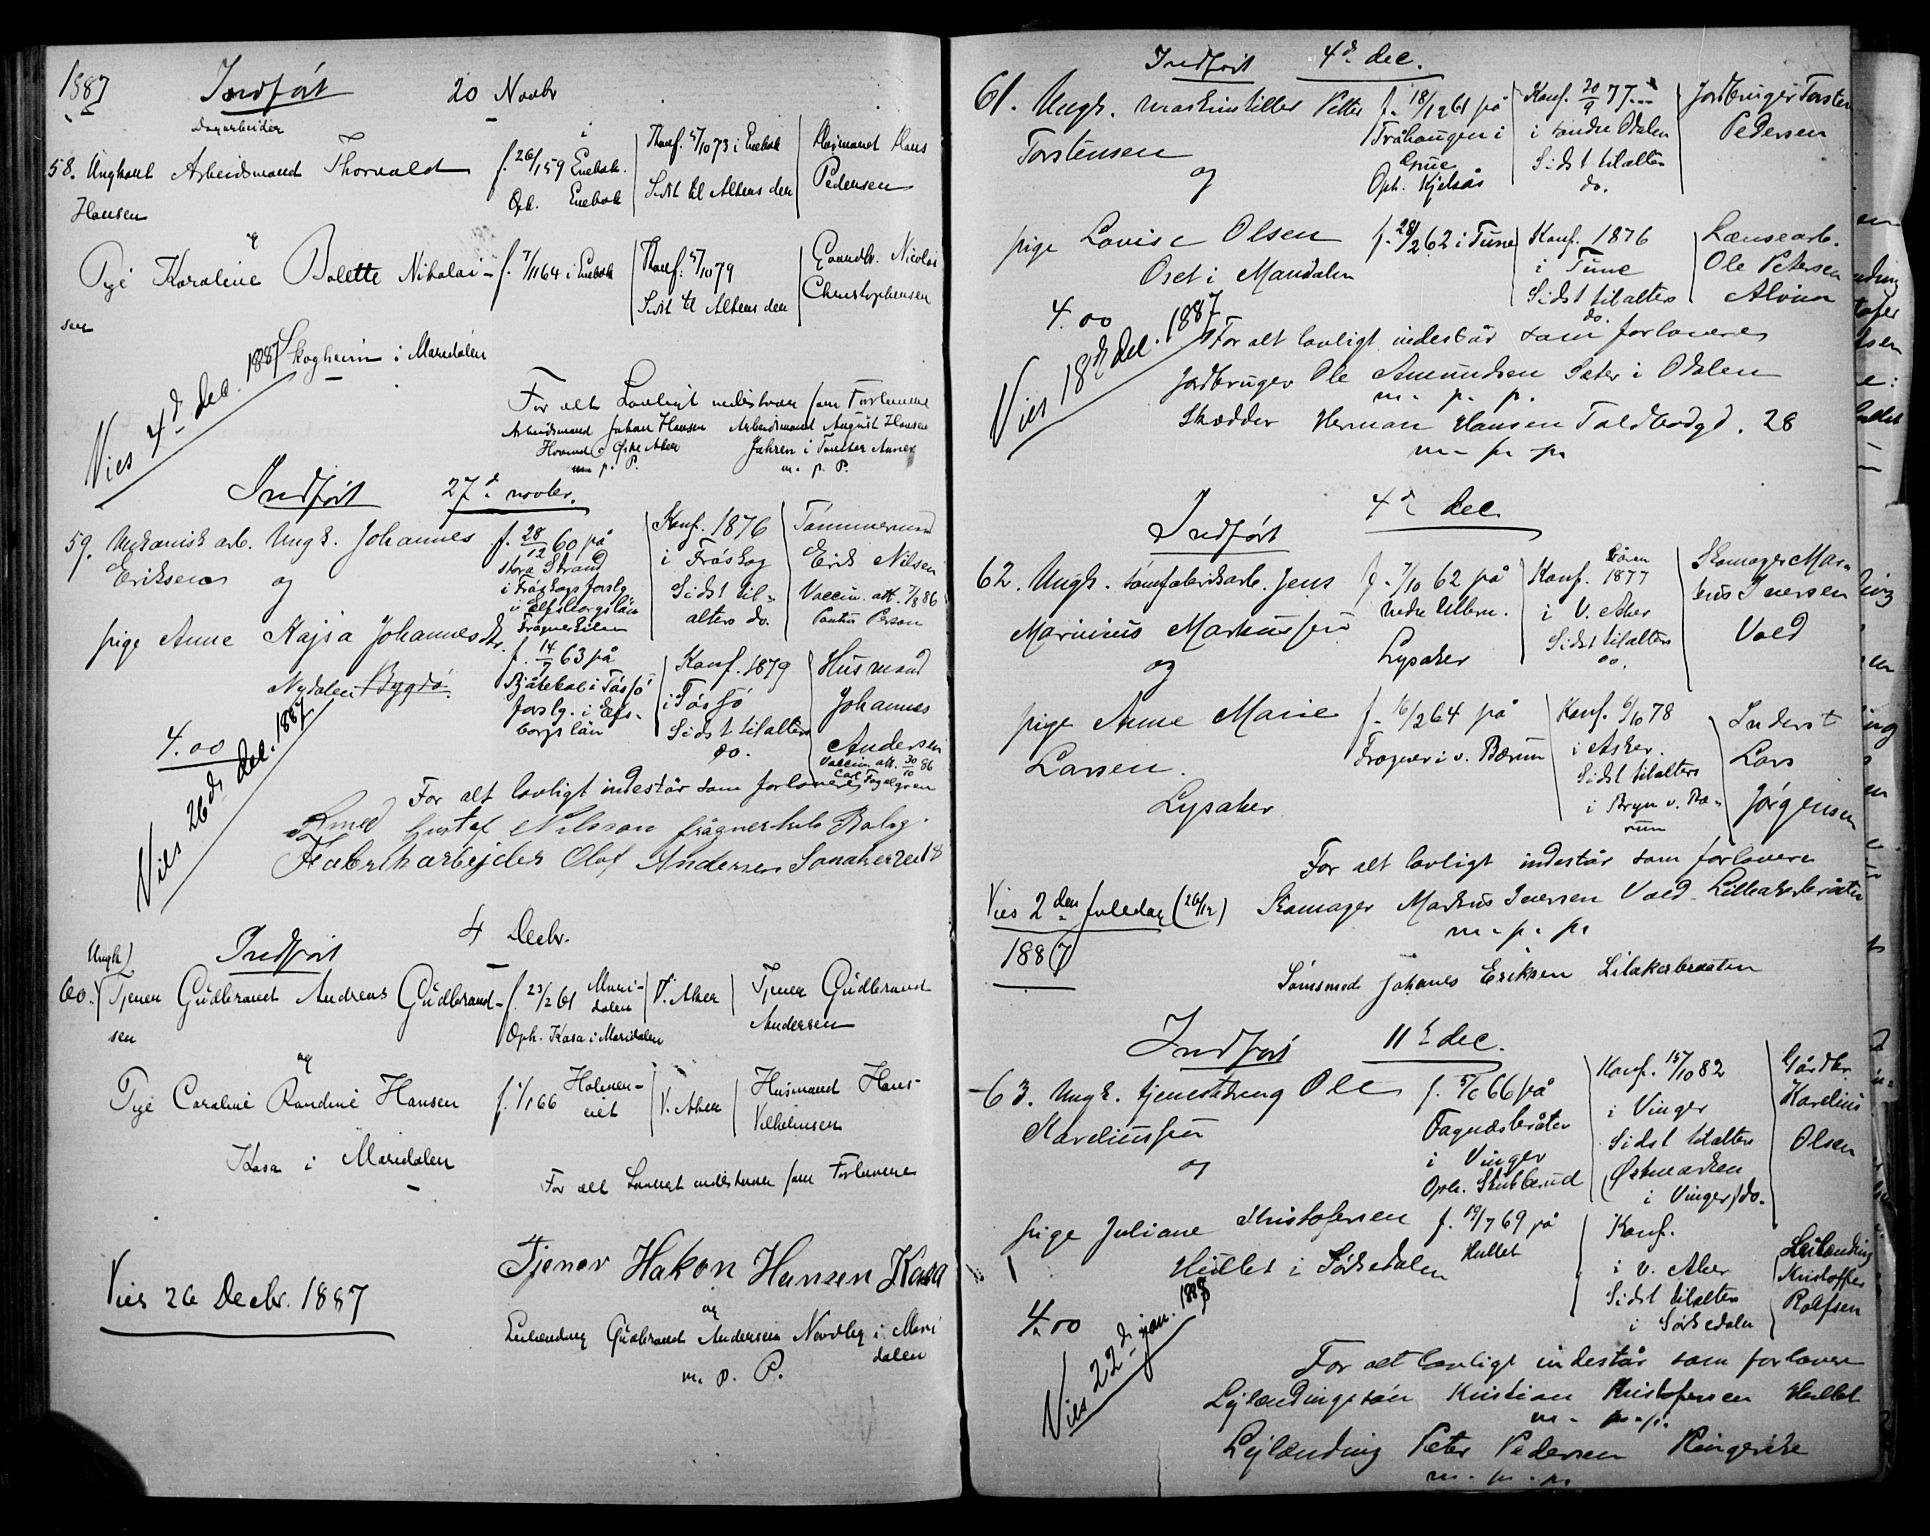 1887
Indført 20 Novbr
Dagarbeider
58. Ungkarl Arbeidsmand Thorvald
Hansen
f. 26/1 59 i Enebak.
Oph. Enebak
Konf. 5/10 73 i Enebak
Sidst til Alters den
Husmand Hans
Pedersen
og
Pige Karoline Bolette Nikolai-
sen
f. 7/11 64 i Enebak
Konf. 5/10 79
Sidst til Alters den
Gaardbr. Nicolai
Christophersen
Skogheim i Maridalen
Viet 4d dec. 1887
For alt Lovligt indestaar som Forlovere
Arbeidsmand Johan Hansen Arbeidsmand August Hansen
Hovind Østre Aker Jahren i
m. p. P. m. p. P.
Indført 27d novbr.
59. Mekanisk arb. Ungk. Johannes
Eriksen og
f. 28/12 60 på
Stora Strand
i Fröskogs forslg
i Elfsborgslän
Konf. 1876
i Fröskog
Sidst til-
alters do.
Tømmermand
Erik Nilsen
Vaccin. att. 7/8 86
Pontus Person
pige Anne Kajsa Johannesdtr.
Nydalen Bygdø.
f. 14/7 63 på
i Tössjö
forslg. i Elfs-
borgslän
Konf. 1879
i Tössjö
Sidst til alters
do.
Husmand
Johannes
Andersen
Vaccin. att. 30/10 86
Carl Fagelgren
4.00
Viet 26d dec. 1887
For alt lovligt indestår som forlovere
Smed Gustaf Nilsson
Fabrikarbejder Olof Andersen 18
Indført 4 Decbr.
Ungk)
60. Tjener Gudbrand Andreas Gudbrand-
sen
f. 23/2 61 Mari-
dalen
Oph. Kasa i Maridalen
V. Aker
Tjener Gudbrand
Andersen
og
Pige Caroline Randine Hansen
f. 1/1 66 Holmen-
eiet
V. Aker
Husmand Hans
Vilhelmsen
Kasa i Maridalen
For alt Lovligt indestaaer som Forlovere
Tjener Hakon Hansen Kasa
og
Leilænding Gudbrand Andersen Nordby i Mari
dalen
m. p. P.
Viet 26 Decbr. 1887
Indført 4d dec.
61. Ungk. maskinstiller Petter
Torstensen
og
f. 18/12 61 på
Fråhaugen i
Grue
Oph. Kjelsås
Konf. 20/9 77
i søndre Odalen
Sidst til alters
do.
Jordbruger Torsten
Pedersen
pige Lovise Olsen
Oset i Maridalen
f. 28/2 62 i Tune
Konf. 1876
i Tune
Sidst til alters
do.
Lænsearb.
Ole Petersen
Alvim
4.00
Viet 18d dec. 1887
For alt lovligt indestår som forlovere
Jordbruger Ole Amundsen Sæter i Odalen
m. p. p.
Skædder Herman Hansen Toldbodgd. 28
m. p. p.
Indført 4d dec.
62. Ungk. sømfabrikarb. Jens
Marinius Markussen
og
f. 7/10 62 på
nedre Ullern.
Lysaker
Konf. 1877
i V. Aker
Sidst til alters
do.
Skomager Mar-
kus Iversen
Vold
pige Anne Marie
Larsen.
Lysaker
f. 16/2 64 på
Frogner i v. Bærum
Konf. 6/10 78
i Asker.
Sidst til alters
i Bryn v. Bæ-
rum
Inderst
Lars
Jørgensen
For alt lovligt indestår som forlovere
Viet 2den Juledag (26/12)
1887
Skomager Markus Iversen Vold. Lilleakerbråten
m. p. p.
Sømsmed Johanes Eriksen Lilakerbraaten
Indført 11d dec.
63. Ungk. tjenestedreng Ole
Kareliussen
og
f. 5/6 66 på
Fagnæsbråten
i Vinger
Oph. Skubberud
Konf. 15/10 82
i Vinger
Sidst til alters
(Østmarken
i Vinger) do.
Gårdbr.
Karelius
Olsen
pige Juliane Kristofersen
Hullet i Sørkedalen
f. 19/7 69 på
Hullet
Konf.
i v. Aker
Sidst til alters
i Sørkedalen
Leilænding
Kristoffer
Rolfsen
4.00
Viet 22d jan. 1888
For alt lovligt indestår som forlovere
Lejlændingssøn Kristian Kristofersen Hullet
m. p. p.
Lejlænding Peter Pedersen Ringerike
m. p. p.